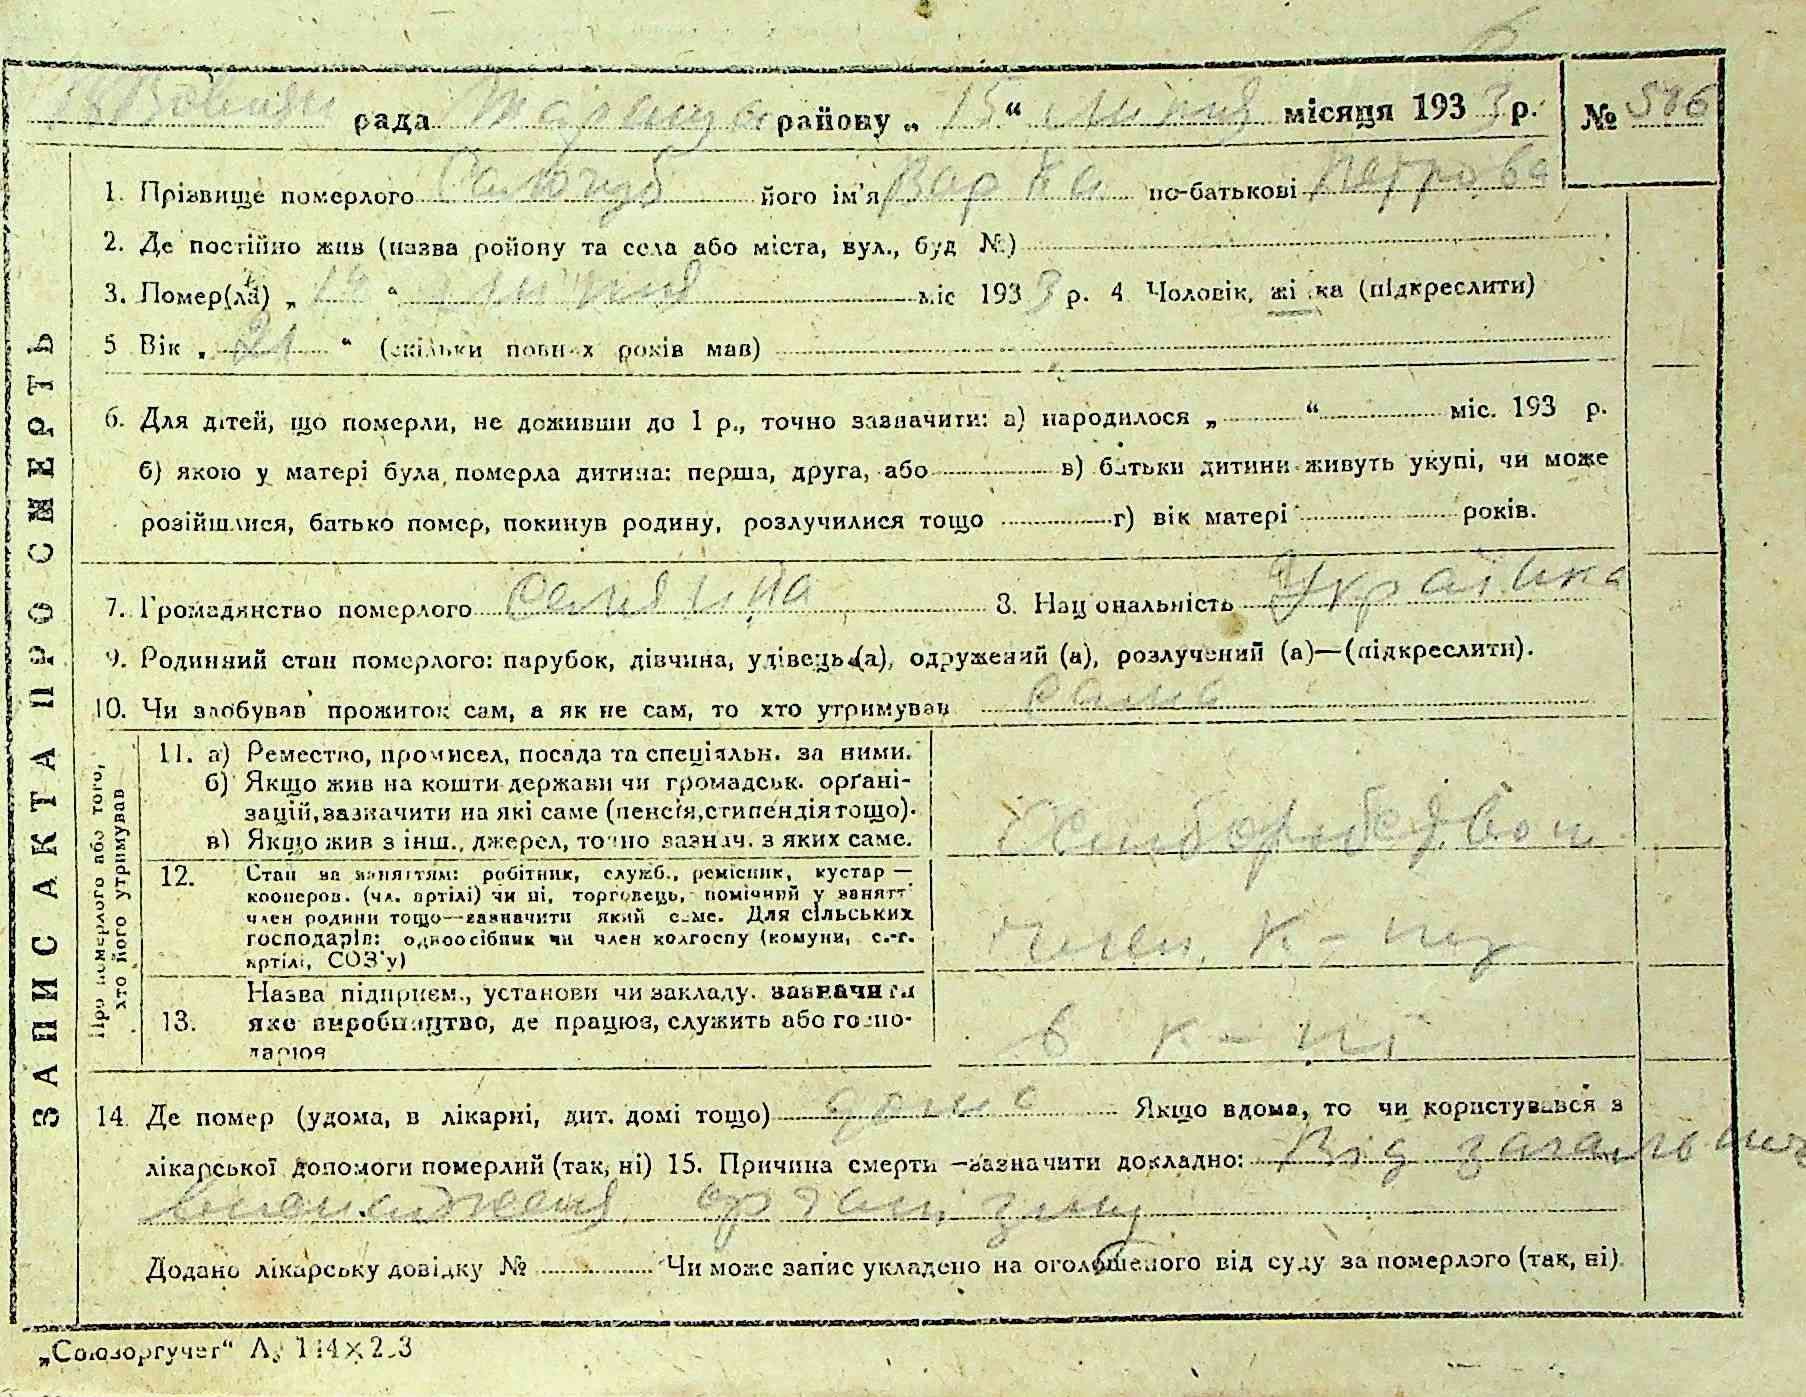 рада района „ 15 “ липня місяця 193 3 р. № 506
1. Прізвище померлого його ім'я Варка по-батькові Петрова
2. Де постійно жив (назва ройону та села або міста, вул., буд №)
3. Помер(ла) „ “ липня міс 193 3 р. 4 Чоловік, жі ка (підкреслити)
5 Вік „ 21 “ (скільки повних років мав)
6. Для дітей, що померли, не доживши до 1 р., точно зазначити: а) народилося „ “ міс. 193 р.
б) якою у матері була померла дитина: перша, друга, або в) батьки дитини живуть укупі, чи може
розійшлися, батько помер, покинув родину, розлучилися тощо г) вік матері років.
7. Громадянство померлого селянка 8. Національність Українка
9. Родинний стан померлого: парубок, дівчина, удівець (а), одружений (а), розлучений (а)—(підкреслити).
10. Чи здобував прожиток сам, а як не сам, то хто утримував сама
ЗАПИС АКТА ПРО СМЕРТЬ
Про померлого або того, хто його утримував
11. а) Ремество, промисел, посада та спеціяльн. за ними.
б) Якщо жив на кошти держави чи громадськ. орґані-
зацій, зазначити на які саме (пенсія, стипендія тощо).
в) Якщо жив з інш., джерел, точно зазнач. з яких саме.
12. Стан за заняттям: робітник, служб., ремісник, кустар —
кооперов. (чл. артілі) чи ні, торговець, помічний у занятт
член родини тощо—зазначити який саме. Для сільських
господарів: одноосібник чи член колгоспу (комуни, с.-г.
артілі, СОЗ'у)
член к-пу
13. Назва підприєм., установи чи закладу. зазначити
яке виробництво, де працює, служить або госпо-
дарює
в к-пі
14. Де помер (удома, в лікарні, дит. домі тощо) дома Якщо вдома, то чи користувався з
лікарської допомоги померлий (так, ні) 15. Причина смерти —зазначити докладно: Від загально
організму
Додано лікарську довідку № Чи може запис укладено на оголошеного від суду за померлого (так, ні)
„Союзоргучет“